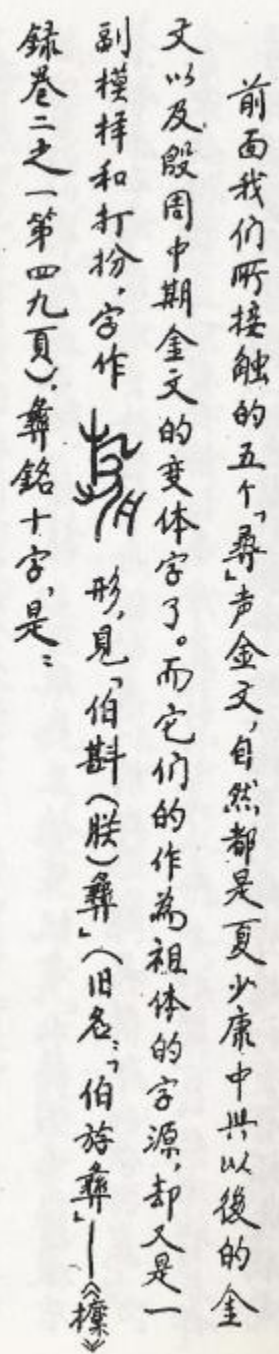 前面我们所接触的五个「彝」声金文，自然都是夏少康中兴以後的金
文以及殷周中期金文的变体字了。而它们的作为祖体的字源，却又是一
副模样和打扮，字作 形，見「伯斟（朕）彝」（旧名：「伯旂彝」——《攈》
録卷二之一第四九頁）。彝銘十字，是：